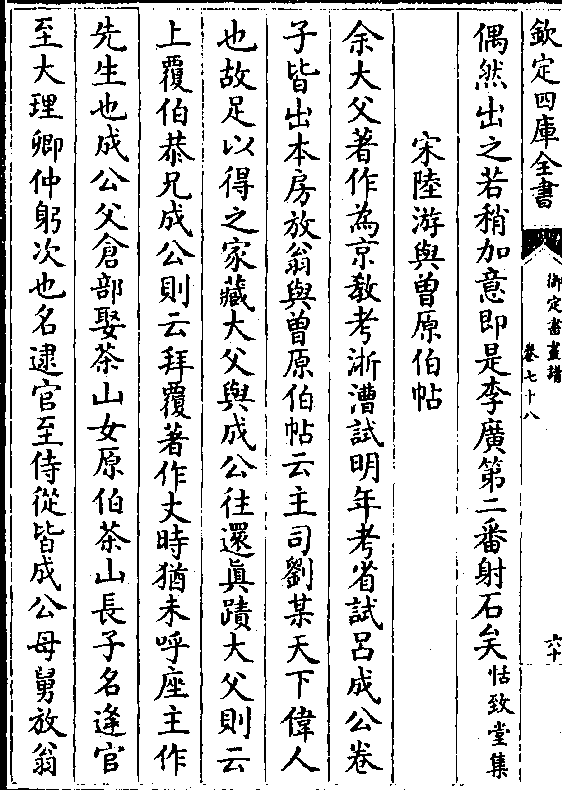 欽定四庫全書
御定書畫譜
卷七十八
六十
偶然出之若稍加意即是李廣第二番射石矣恬致堂集
宋陸游與曾原伯帖
余大父著作為京教考浙漕試明年考省試呂成公卷
子皆出本房放翁與曾原伯帖云主司劉某天下偉人
也故足以得之家藏大父與成公往還眞蹟大父則云
上覆伯恭兄成公則云拜覆著作丈時猶未呼座主作
先生也成公父倉部娶茶山女原伯茶山長子名逢官
至大理卿仲躬次也名逮官至侍從皆成公母舅放翁